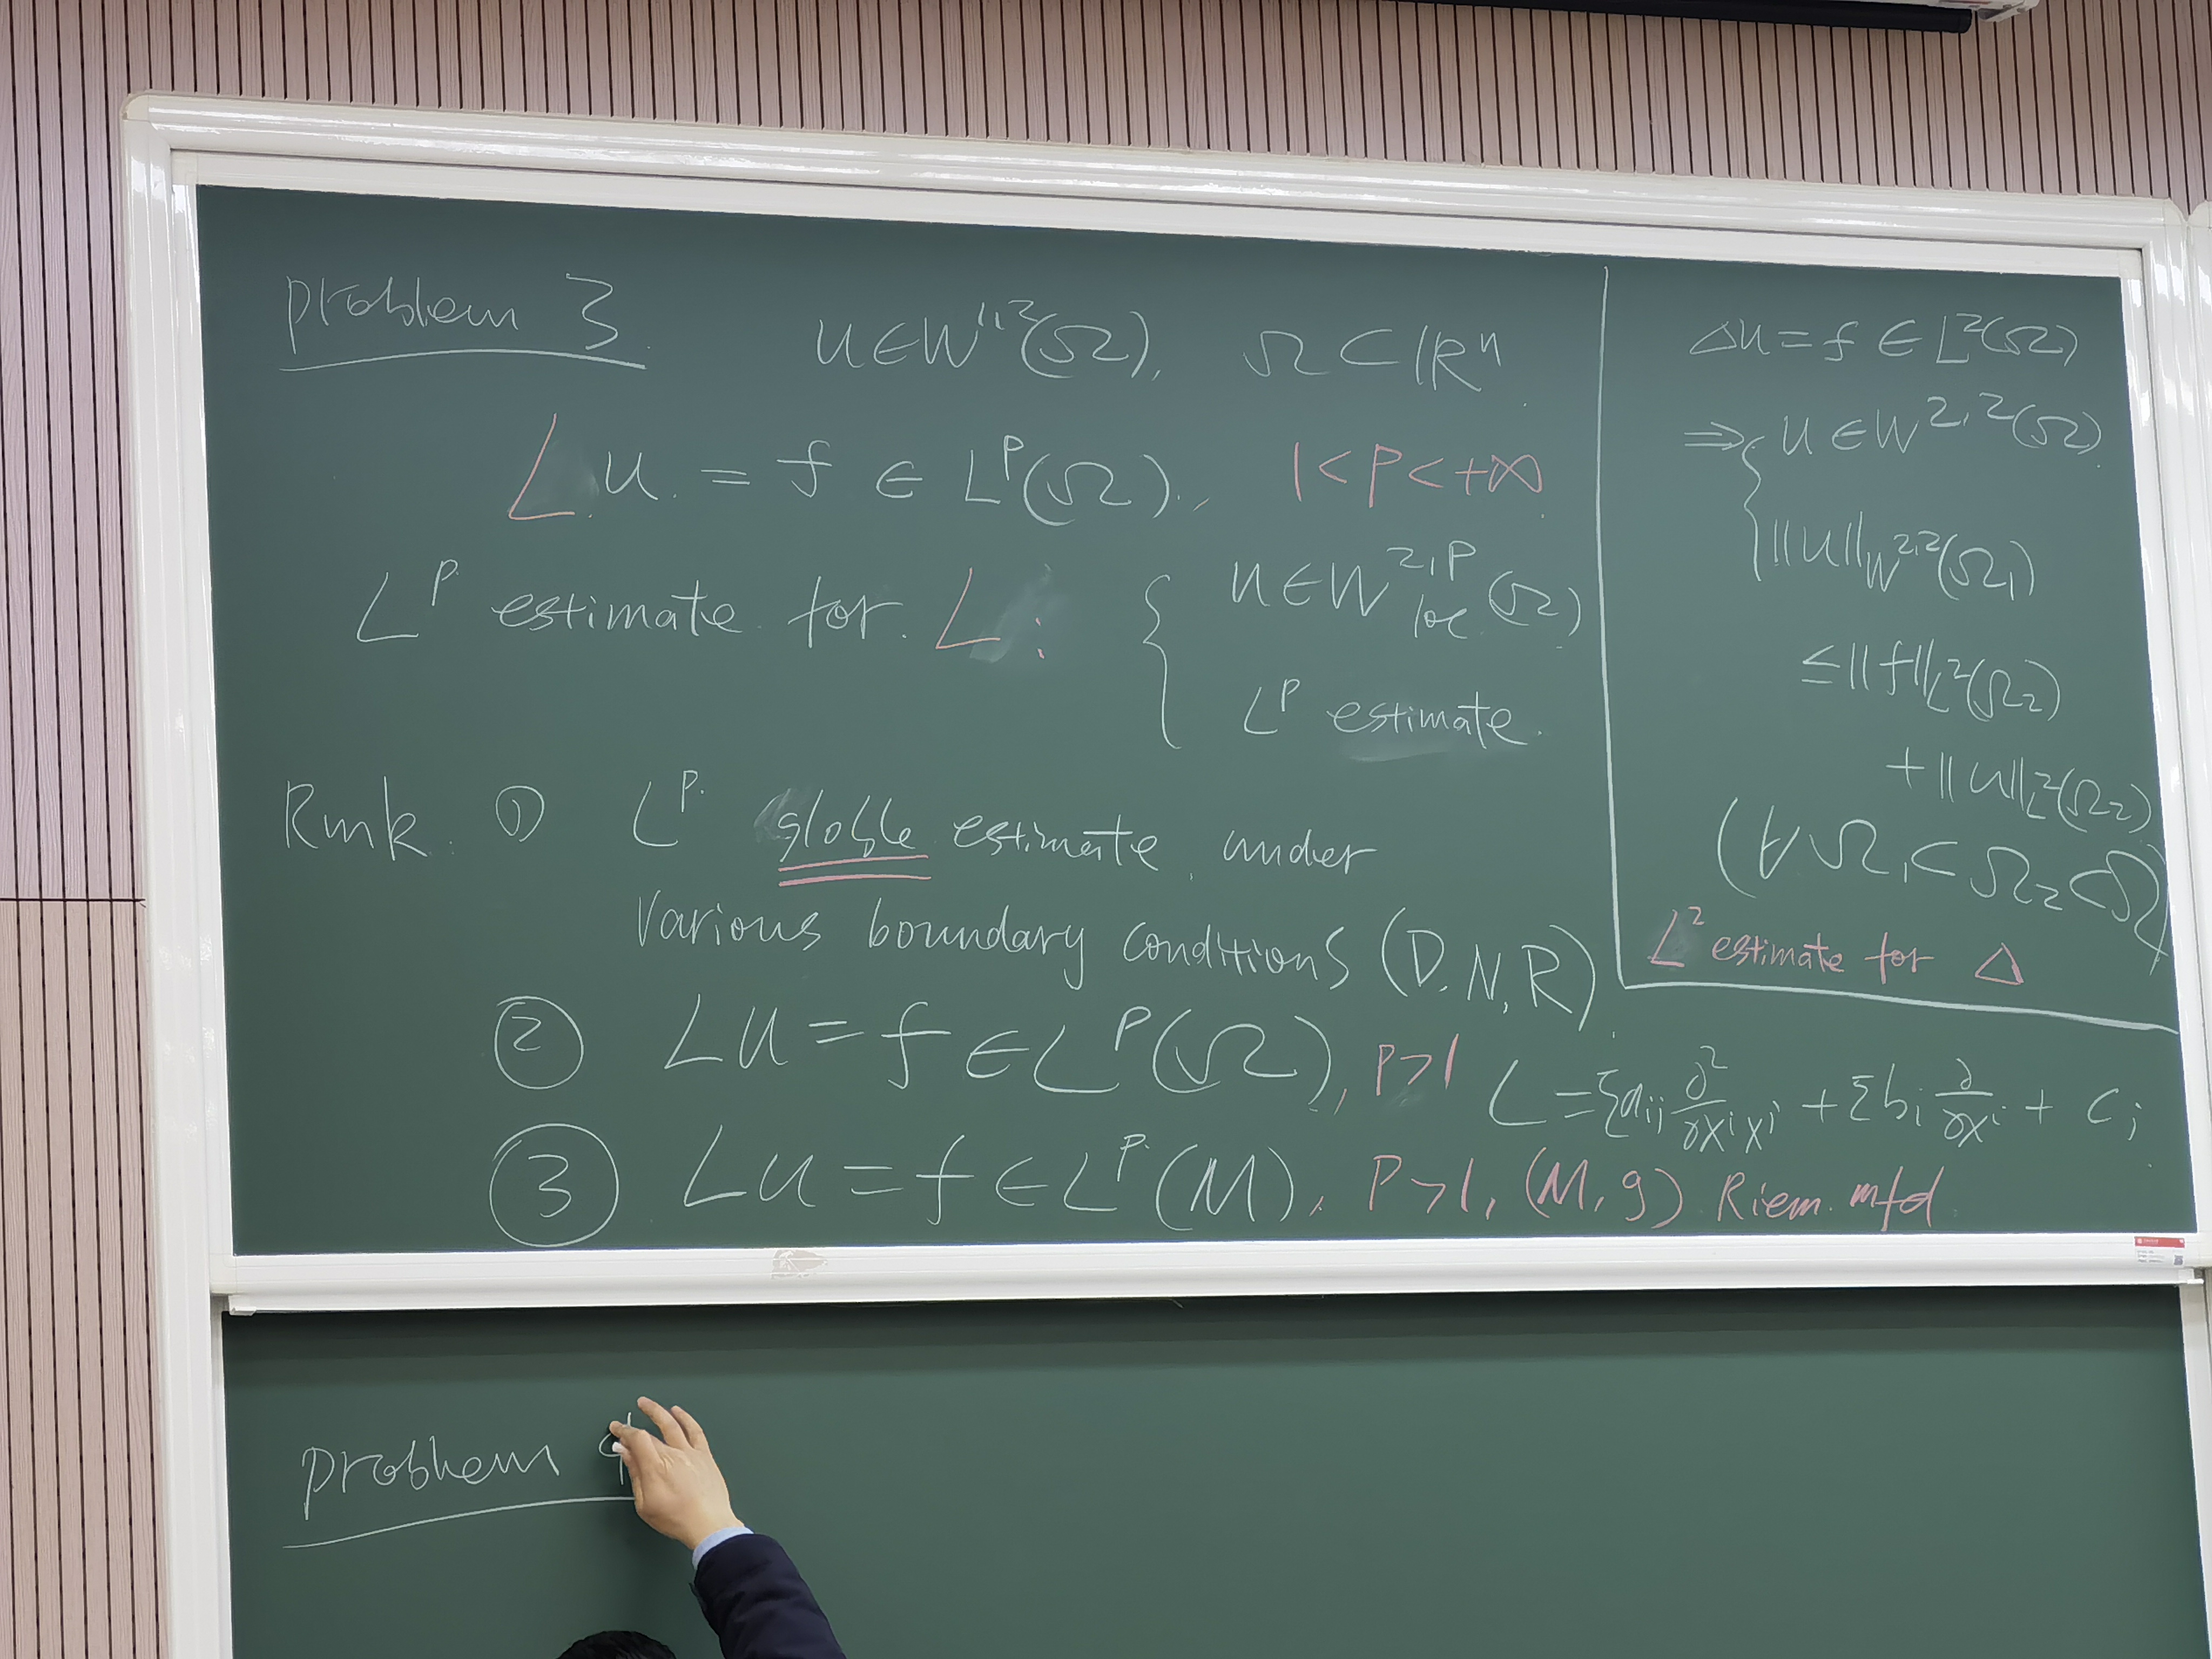 Problem 3.
u∈W^{1,2}(Ω), Ω⊂ℝⁿ.
Lu = f ∈ L^p(Ω), 1<p<+∞
L^p estimate for L:
{ u∈W^{2,p}_{loc}(Ω)
L^p estimate.
Rmk. ① L^p globle estimate, under
various boundary conditions (D, N, R)
② Lu = f ∈ L^p(Ω), p>1
L = Σa_{ij} ∂²/∂xⁱxʲ + Σb_i ∂/∂xⁱ + c;
③ Lu = f ∈ L^p(M), p>1, (M, g) Riem. mfd.
Δu = f ∈ L²(Ω)
⇒ { u∈W^{2,2}(Ω)
‖u‖_{W^{2,2}(Ω₁)}
≤ ‖f‖_{L²(Ω₂)}
+ ‖u‖_{L²(Ω₂)}
(∀ Ω₁⊂Ω₂⊂Ω)
L² estimate for Δ
Problem 4